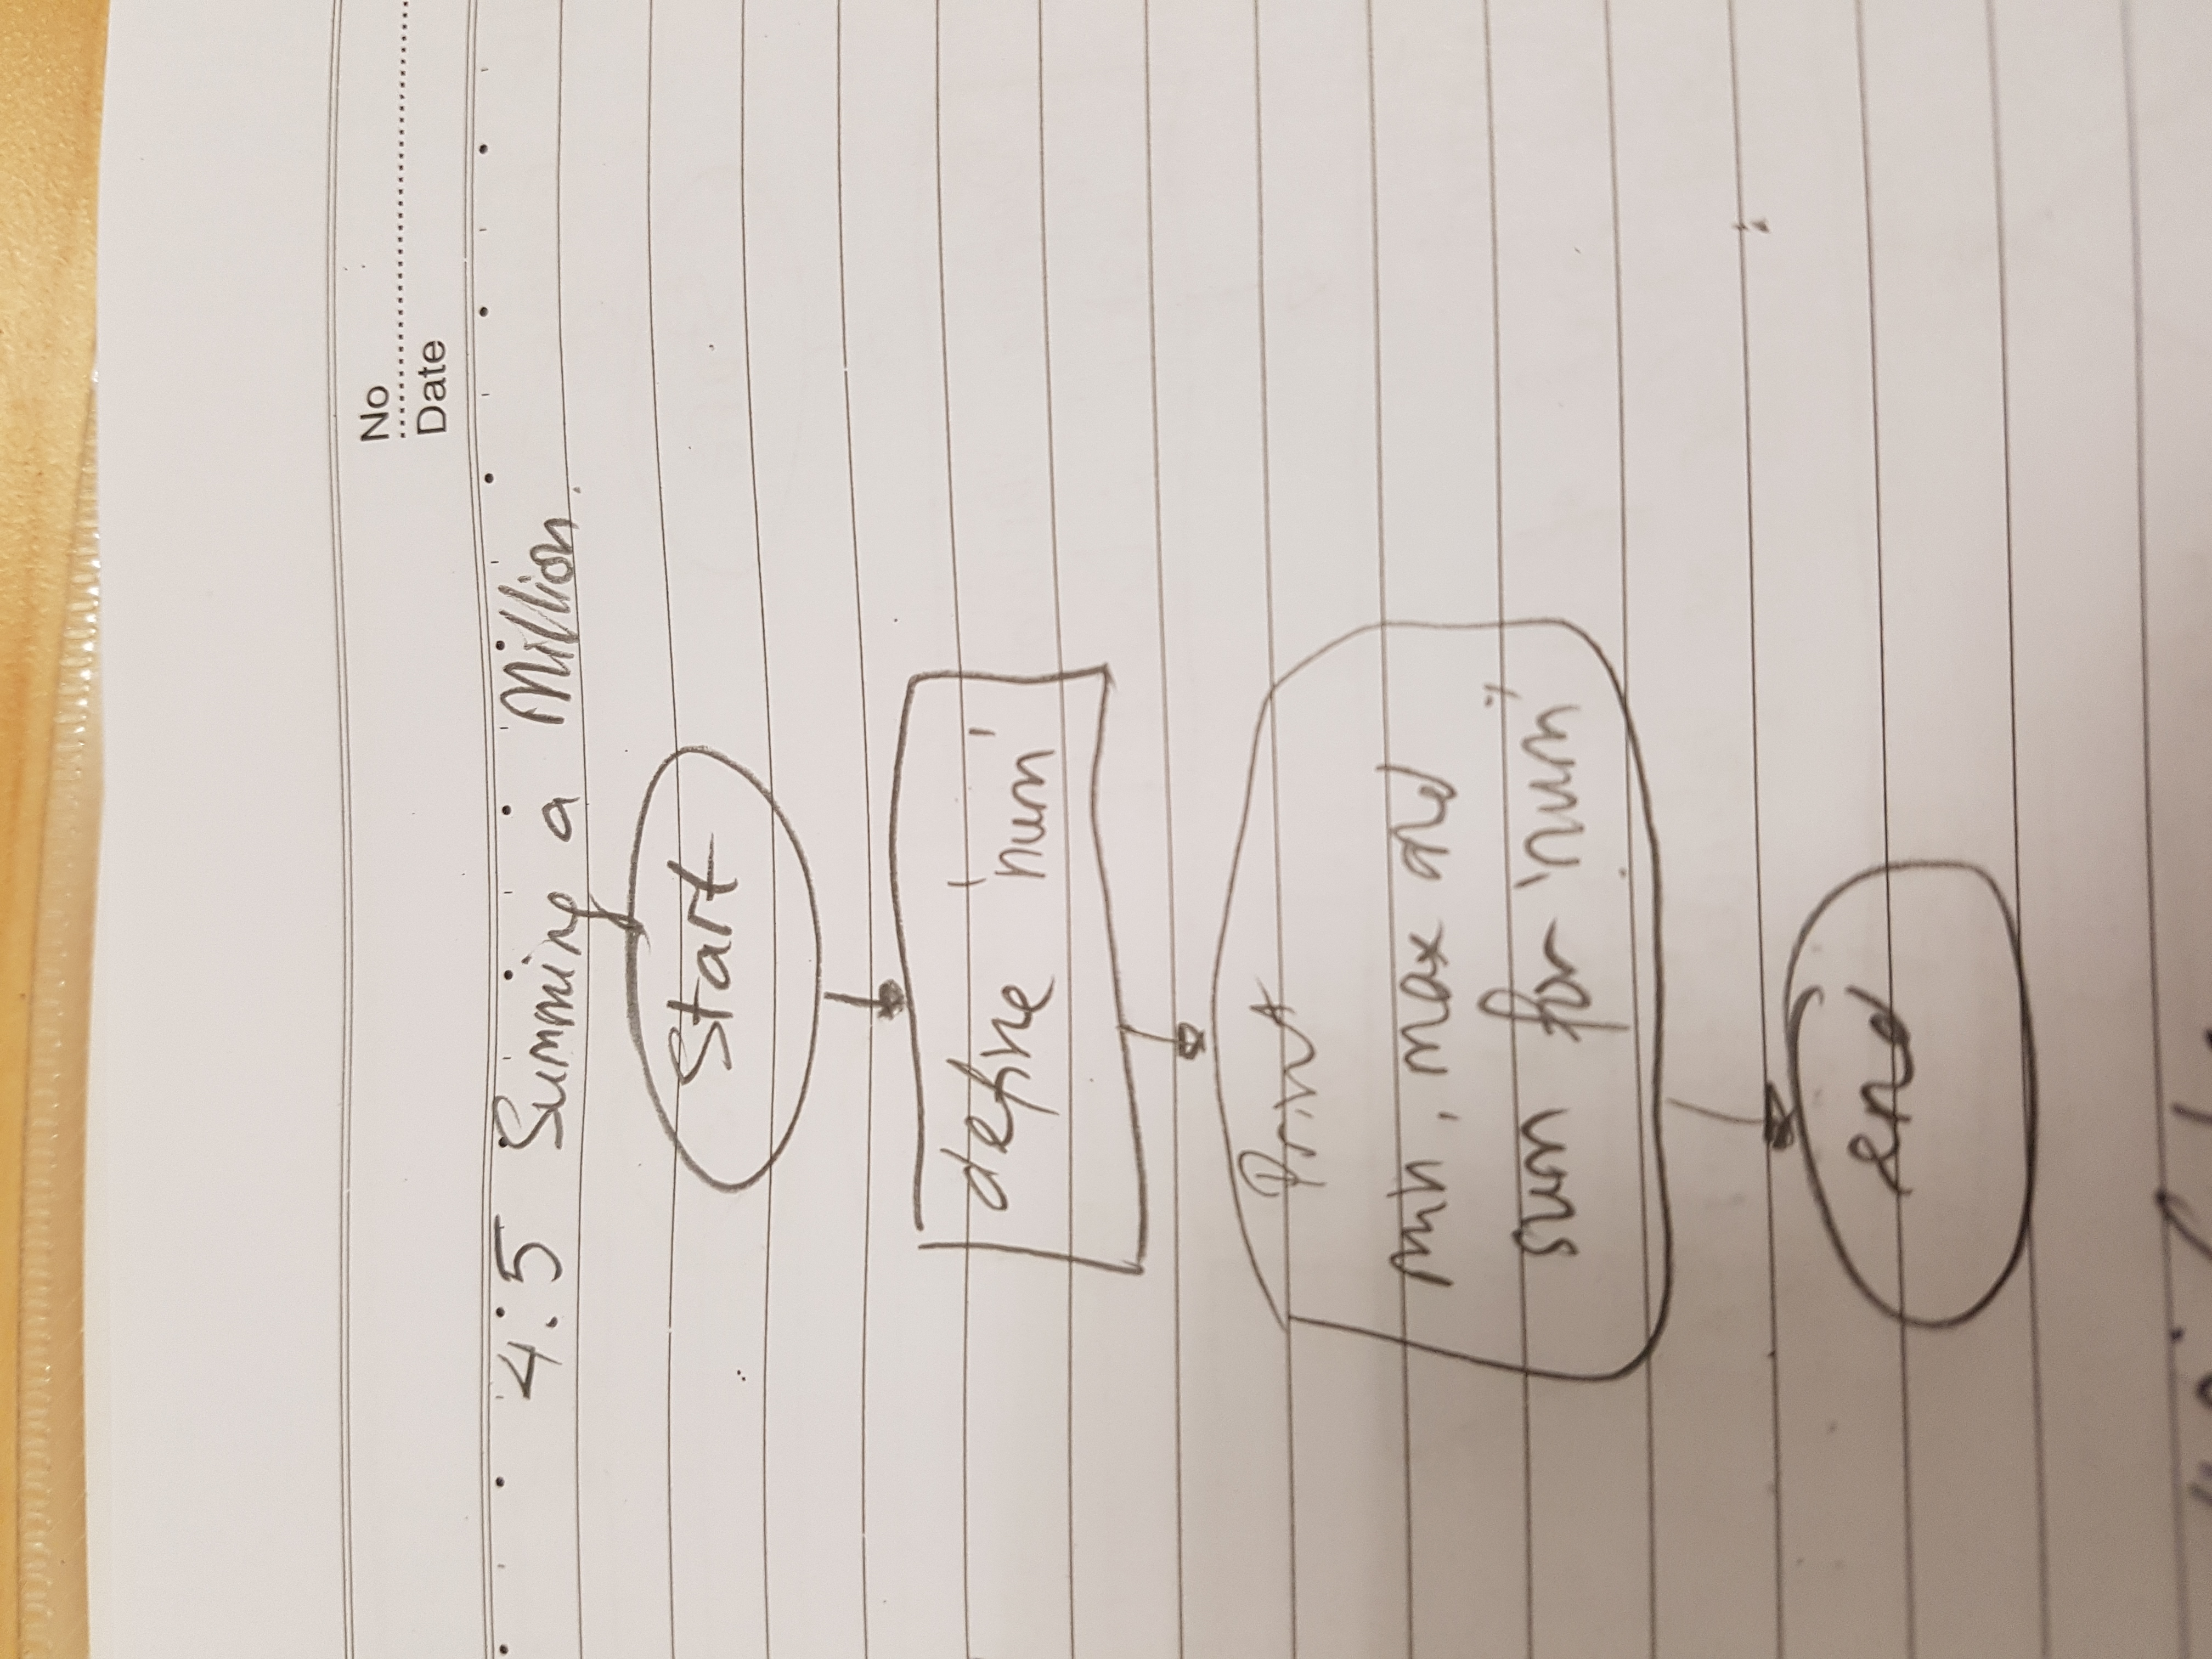 No
Date
4.5 Summing a Million.
Start
define 'num'
Print
min, max and
sum for 'num'
end